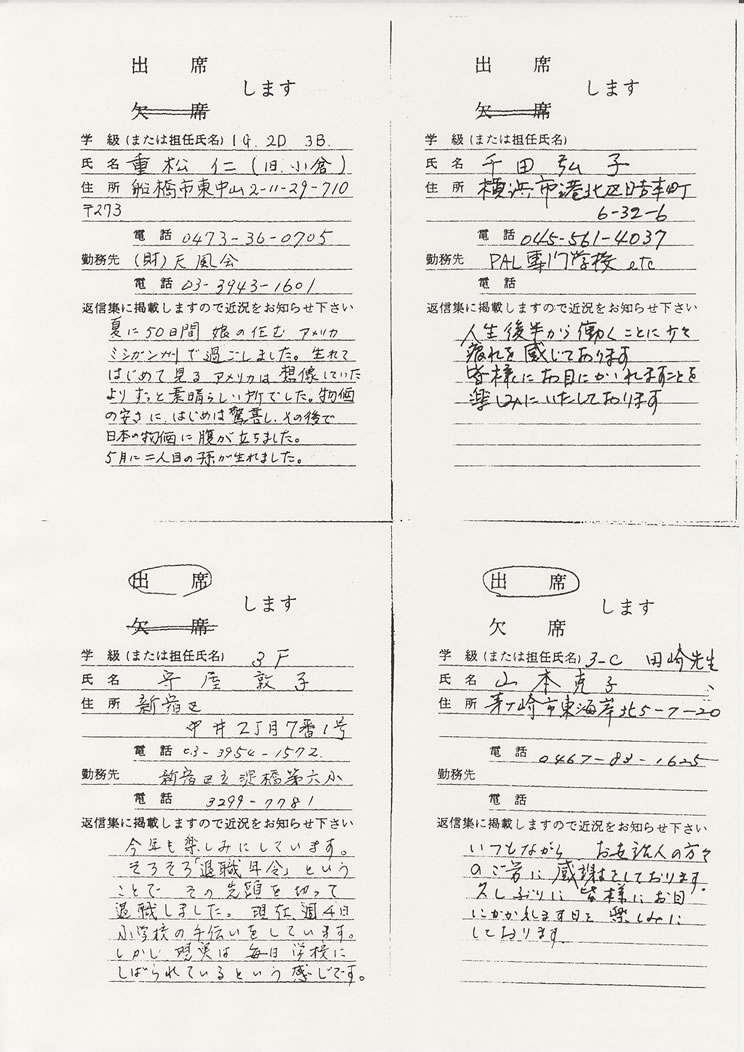 出 席
します
欠 席
学 級 (または担任氏名) 1G. 2D 3B.
氏 名 重松 仁 (旧. 小倉)
住 所 船橋市東中山2-11-29-710
〒273
電 話 0473-36-0705
勤務先 (財)天風会
電 話 03-3943-1601
返信集に掲載しますので近況をお知らせ下さい
夏に50日間 娘の住む アメリカ
ミシガン州で過ごしました。生れて
はじめて見るアメリカは想像していた
よりずっと素晴らしい所でした。物価
の安さに、はじめは驚喜し、その後で
日本の物価に腹が立ちました。
5月に二人目の孫が生れました。
出 席
します
欠 席
学 級 (または担任氏名)
氏 名 千田 弘子
住 所 横浜市港北区日吉本町
6-32-6
電 話 045-561-4037
勤務先 PAL専門学校 etc
電 話
返信集に掲載しますので近況をお知らせ下さい
人生後半から働くことに少々
疲れを感じております
皆様にお目にかゝれますことを
楽しみにいたしております
出 席
します
欠 席
学 級 (または担任氏名) 3F
氏 名 守屋 敦子
住 所 新宿区
中井2丁目7番1号
電 話 03-3954-1572.
勤務先 新宿区立淀橋第六小
電 話 3299-7781
返信集に掲載しますので近況をお知らせ下さい
今年も楽しみにしています。
そろそろ「退職年令」という
ことで その先頭を切って
退職しました。現在週4日
小学校の手伝いをしています。
しかし 現実は 毎日 学校に
しばられているという感じです。
出 席
します
欠 席
学 級 (または担任氏名) 3-C 田崎先生
氏 名 山本克子
住 所 茅ケ崎市東海岸北5-7-20
電 話 0467-83-1625
勤務先
電 話
返信集に掲載しますので近況をお知らせ下さい
いつもながら お世話人の方々
のご苦に感謝をしております.
久しぶりに 皆様にお目
にかかれます日を楽しみに
しております.